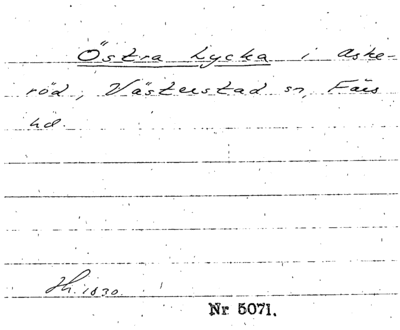 Östra Lycka i Aske-
röd, Västerstad sn, Färs
hd.
Hr. 1830.
Nr 5071.